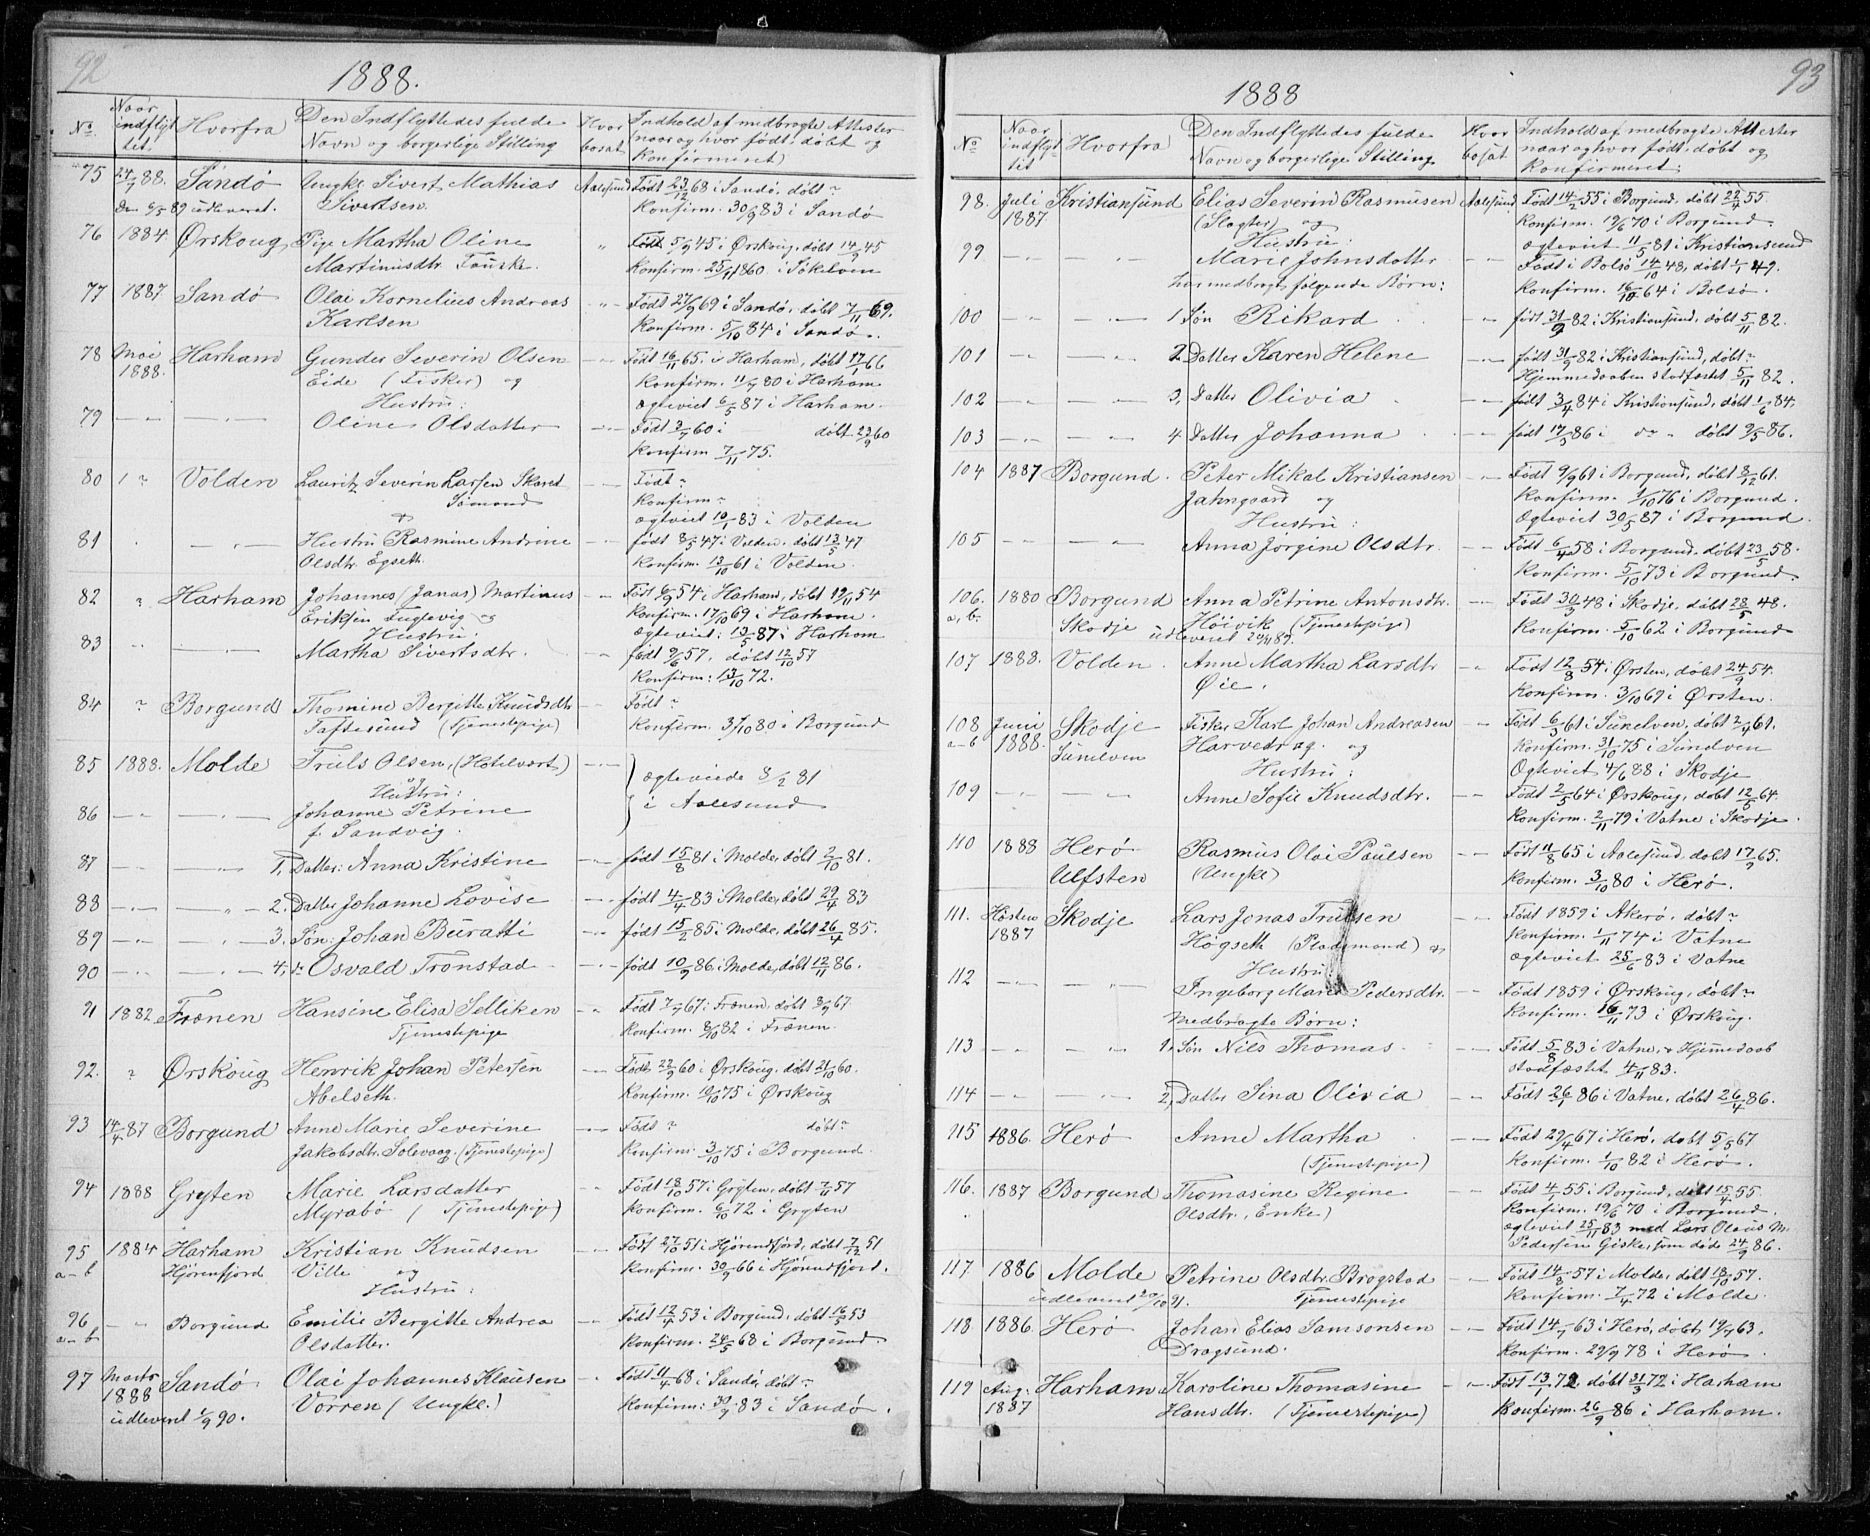 92
1888.
No. Naar indflyttet. Hvorfra Den Indflyttedes fulde Navn og borgerlige Stilling Hvor bosat. Indhold af medbragte Attester naar og hvor født, døbt og konfirmeret)
75 24/7 88. Sandø Ungkl. Sivert Mathias Aalesund Født 23/12 68 i Sandø, døbt "
Den 6/5 89 udleveret. Sivertsen. Konfirm. 30/9 83 i Sandø
76 1884 Ørskoug, Pige Martha Oline " Født 5/9 45 i Ørskoug, døbt 14/9 45
Martinusdtr. Fauske. Konfirm. 25/11 1860 i Søkelven
77 1887 Sandø Olai Kornelius Andreas " Født 27/9 69 i Sandø, døbt 7/11 69.
Karlsen Konfirm. 5/10 84 i Sandø.
78 Mai Harham Gunder Severin Olsen - - Født 16/11 65 i Harham, døbt 17/1 66
1888. Eide (Fisker) og Konfirm. 11/7 80 i Harham
Hustru: Ægteviet 6/5 87 i Harham.
79 - " - - " - Oline Olsdatter - - Født 3/7 60 i døbt 23/9 60
Konfirm 7/11 75.
80 1 " Volden Lauritz Severin Larsen Skaret Født "
Sømand Konfirm "
& Ægteviet 10/1 83 i Volden
81 . - " - Hustru Rasmine Andrine - - født 8/5 47 i Volden, døbt 13/5 47
Olsdtr. Egseth. Konfirm. 13/10 61 i Volden.
82 " Harham Johannes (Janas) Martinus - - Født 6/9 54 i Harham, døbt 19/11 54
Eriksen Fuglevig og Konfirm. 17/10 69 i Harham.
Hustru: Ægteviet: 13/5 87 i Harham
83 .. - " - Martha Sivertsdtr. " født 9/6 57. døbt 12/10 57
Konfirm: 13/10 72.
84 " Borgund Thomine Bergitte Knudsdtr - - Født "
Taftesund (Tjenestepige) Konfirm. 3/10 80 i Borgund
85 1888. Molde Truls Olsen, (Hotelvært) - " - Ægteviede 8/2 81
og Hustru: i Aalesund
86 - " - - " - Johanne Petrine
f. Sandvig.
87 - " - - " - 1, Datter: Anna Kristine - - født 15/8 81 i Molde, døbt 2/10 81.
88 - " - - " - 2. Datter Johanne Lovise - født 4/4 83 i Molde, døbt 29/4 83
89 - " - - " - 3. Søn: Johan Buratti - født 15/2 85 i Molde, døbt 26/4 85.
90 - " - - " - 4, " Osvald Tronstad - - født 10/9 86 i Molde, døbt 12/11 86.
91 1882 Frænen Hansine Elisa Selliken " Født 7/7 67 i Frænen, døbt 8/9 67
Tjenestepige Konfirm. 8/10 82 i Frænen.
92. " Ørskoug Henrik Johan Petersen - - Født 22/9 60 i Ørskoug, døbt 21/10 60.
Abelseth. Konfirm. 10/10 75 i Ørskoug
93 14/4 87 Borgund Anne Marie Severine - - Født " døbt "
Jakobsdtr. Solevaag (Tjenestepige) Konfirm: 3/10 75 i Borgund.
94 1888 Grytten Marie Larsdatter - - Født 18/10 57 i Grytten, døbt 7/11 57
Myrabø (Tjenestepige) Konfirm. 6/10 72 i Grytten
95 1884 Harham Kristian Knudsen " Født 27/10 51 i Hjørendfjord, døbt 7/12 51
a-b Hjørenfjord Ville og Konfirm. 30/9 66 i Hjørundfjord.
Hustru:
96 - " - Borgund Emilie Bergitte Andrea - - Født 12/4 53 i Borgund, døbt 16/5 53
a-b Olsdatter. Konfirm. 24/5 68 i Borgund.
97 Marts Sandø Olai Johannes Klausen " Født 11/4 68 i Sandø, døbt "
1888 Vorren (Ungkl.) Konfirm: 30/9 83 i Sandø.
udleveret 1/9 90.
93
1888
No Naar indflyttet Hvorfra Den Indflyttedes fulde Navn og borgerlige Stilling Hvor bosat Indhold af medbragte Attester naar og hvor født, døbt og konfirmeret.
98. Juli Kristiansund Elias Severin Rasmusen Aalesund Født 14/2 55 i Borgund, døbt 22/4 55.
1887 (Slagter) og Konfirm. 19/6 70 i Borgund.
Hustru: Ægteviet 11/5 81 i Kristiansund
99 - " - - " - Marie Johnsdatter Født i Bolsø 14/10 48, døbt 1/1 49.
har medbragt følgende Børn: Konfirm. 16/10 64 i Bolsø.
100 - " - - " - 1 Søn Rikard - " født 31/9 82 i Kristiansund, døbt 5/11 82.
101 - " - - " - 2. Datter Karen Helene - " født 31/9 82 i Kristiansund, døbt "
Hjemmedaaben stadfæstet 5/11 82.
102 - " - - " - 3, Datter Olivia - " født 3/4 84 i Kristiansund, døbt 1/6 84,
103 - " - - " - 4 Datter Johanna - " født 17/3 86 i do " døbt 9/5 86.
104 1887 Borgund. Peter Mikal Kristiansen - " Født 9/9 61 i Borgund, døbt 8/12 61.
Jahngaard og Konfirm. 1/10 76 i Borgund.
Hustru: Ægteviet 30/5 87 i Borgund.
105 - " - - " - Anna Jørgine Olsdtr. - - Født 6/4 58 i Borgund. døbt 23/5 58.
Konfirm. 5/10 73 i Borgund.
106. 1880 Borgund Anna Petrine Antonsdtr. - - Født 30/3 48 i Skodje, døbt 28/5 48.
a, b. Skodje Høivik (Tjenestepige) Konfirm. 5/10 62 i Borgund
udleveret 24/11 87.
107 1888. Volden. Anne Martha Larsdtr " Født 12/8 54 i Ørsten, døbt 24/9 54.
Øie. Konfirm. 3/10 69 i Ørsten.
108 Juni Skodje Fisker Karl Johan Andreasen - - Født 6/3 61 i Sunelven, døbt 2/4 61.
a-b 1888. Sunelven Harvedrag. og Konfirm. 31/10 75 i Sundven
Hustru: Ægteviet 4/6 88 i Skodje
109 - " - - " - Anne Sofie Knudsdtr. - - Født 2/5 64 i Ørskoug, døbt 12/6 64.
Konfirm. 2/11 79 i Vatne i Skodje.
110 1888 Herø Rasmus Olai Paulsen - - Født 11/8 65 i Aalesund, døbt 17/9 65.
Ulfsten (Ungkl) Konfirm. 3/10 80 i Herø.
111. Høsten Skodje Lars Jonas Trulsen - - Født 1859 i Akerø, døbt "
1887 Høgseth (Pladsmand) & Konfirm. 1/11 74 i Vatne
Hustru: Ægteviet 25/6 83 i Vatne
112 - " - - " - Ingeborg Marie Pedersdtr. - - Født 1859 i Ørskoug, døbt "
Medbragte Børn: Konfirm. 16/11 73 i Ørskoug.
113 - " - - " - 1. Søn Nils Thomas. - - Født 5/8 83 i Vatne, & Hjemmedaab
stadfæstet 4/11 83.
114 - " - - " - 2, Datter Sina Olivia - - Født 26/1 86 i Vatne, døbt 26/4 86.
115 1886. Herø Anne Martha - - Født 29/4 67 i Herø, døbt 5/5 67
(Tjenestepige) Konfirm. 1/10 82 i Herø.
116. 1887 Borgund Thomasine Regine - - Født 4/1 55 i Borgund, døbt 15/4 55.
Olsdtr. Enke) Konfirm. 19/6 70 i Borgund.
ægteviet 25/11 83 med Lars Olaus M.
Pedersen Giske, som døde 24/9 86.
117. 1886 Molde Petrine Olsdtr. Brogstad - - Født 14/8 57 i Molde, døbt 18/10 57.
udleveret 20/10 91. Tjenestepige Konfirm. 7/4 72 i Molde.
118. 1886. Herø Johan Elias Samsonsen - - Født 14/7 63 i Herø, døbt 19/7 63.
Dragsund. Konfirm. 29/9 78 i Herø.
119 Aug. Harham Karoline Thomasine - " - Født 13/1 72 døbt 31/3 72 i Harham
1887 Hansdtr. (Tjenestepige) Konfirm. 26/9 86 i Harham.